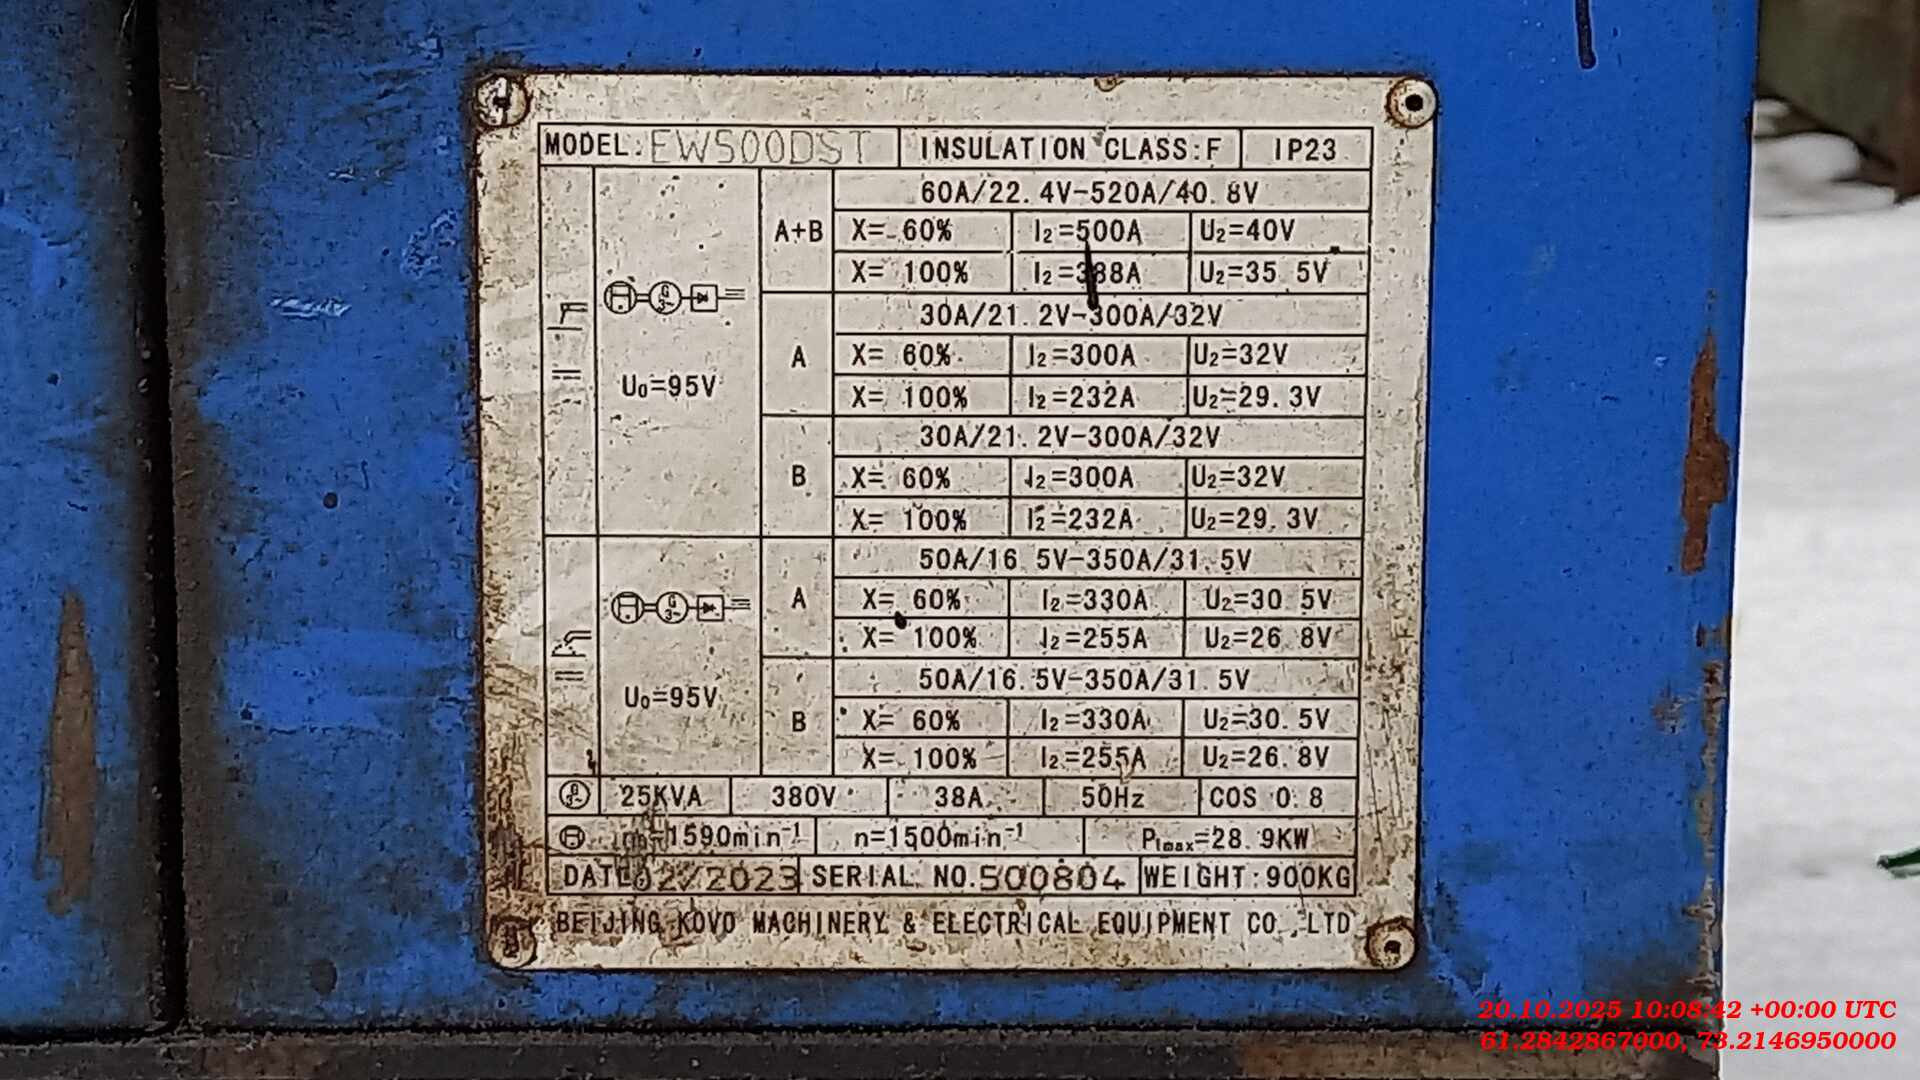 MODEL: EW500DST INSULATION CLASS:F IP23
60A/22.4V-520A/40.8V
A+B X= 60% I2=500A U2=40V
X= 100% I2=388A U2=35.5V
30A/21.2V-300A/32V
A X= 60% I2=300A U2=32V
X= 100% I2=232A U2=29.3V
U0=95V
30A/21.2V-300A/32V
B X= 60% I2=300A U2=32V
X= 100% I2=232A U2=29.3V
50A/16.5V-350A/31.5V
A X= 60% I2=330A U2=30.5V
X= 100% I2=255A U2=26.8V
U0=95V
50A/16.5V-350A/31.5V
B X= 60% I2=330A U2=30.5V
X= 100% I2=255A U2=26.8V
25KVA 380V 38A 50Hz COS 0.8
=1590min-1 n=1500min-1 P1max=28.9KW
DATE: 02/2023 SERIAL NO.500804 WEIGHT:900KG
BEIJING KOVO MACHINERY & ELECTRICAL EQUIPMENT CO.,LTD
20.10.2025 10:08:42 +00:00 UTC
61.2842867000, 73.2146950000